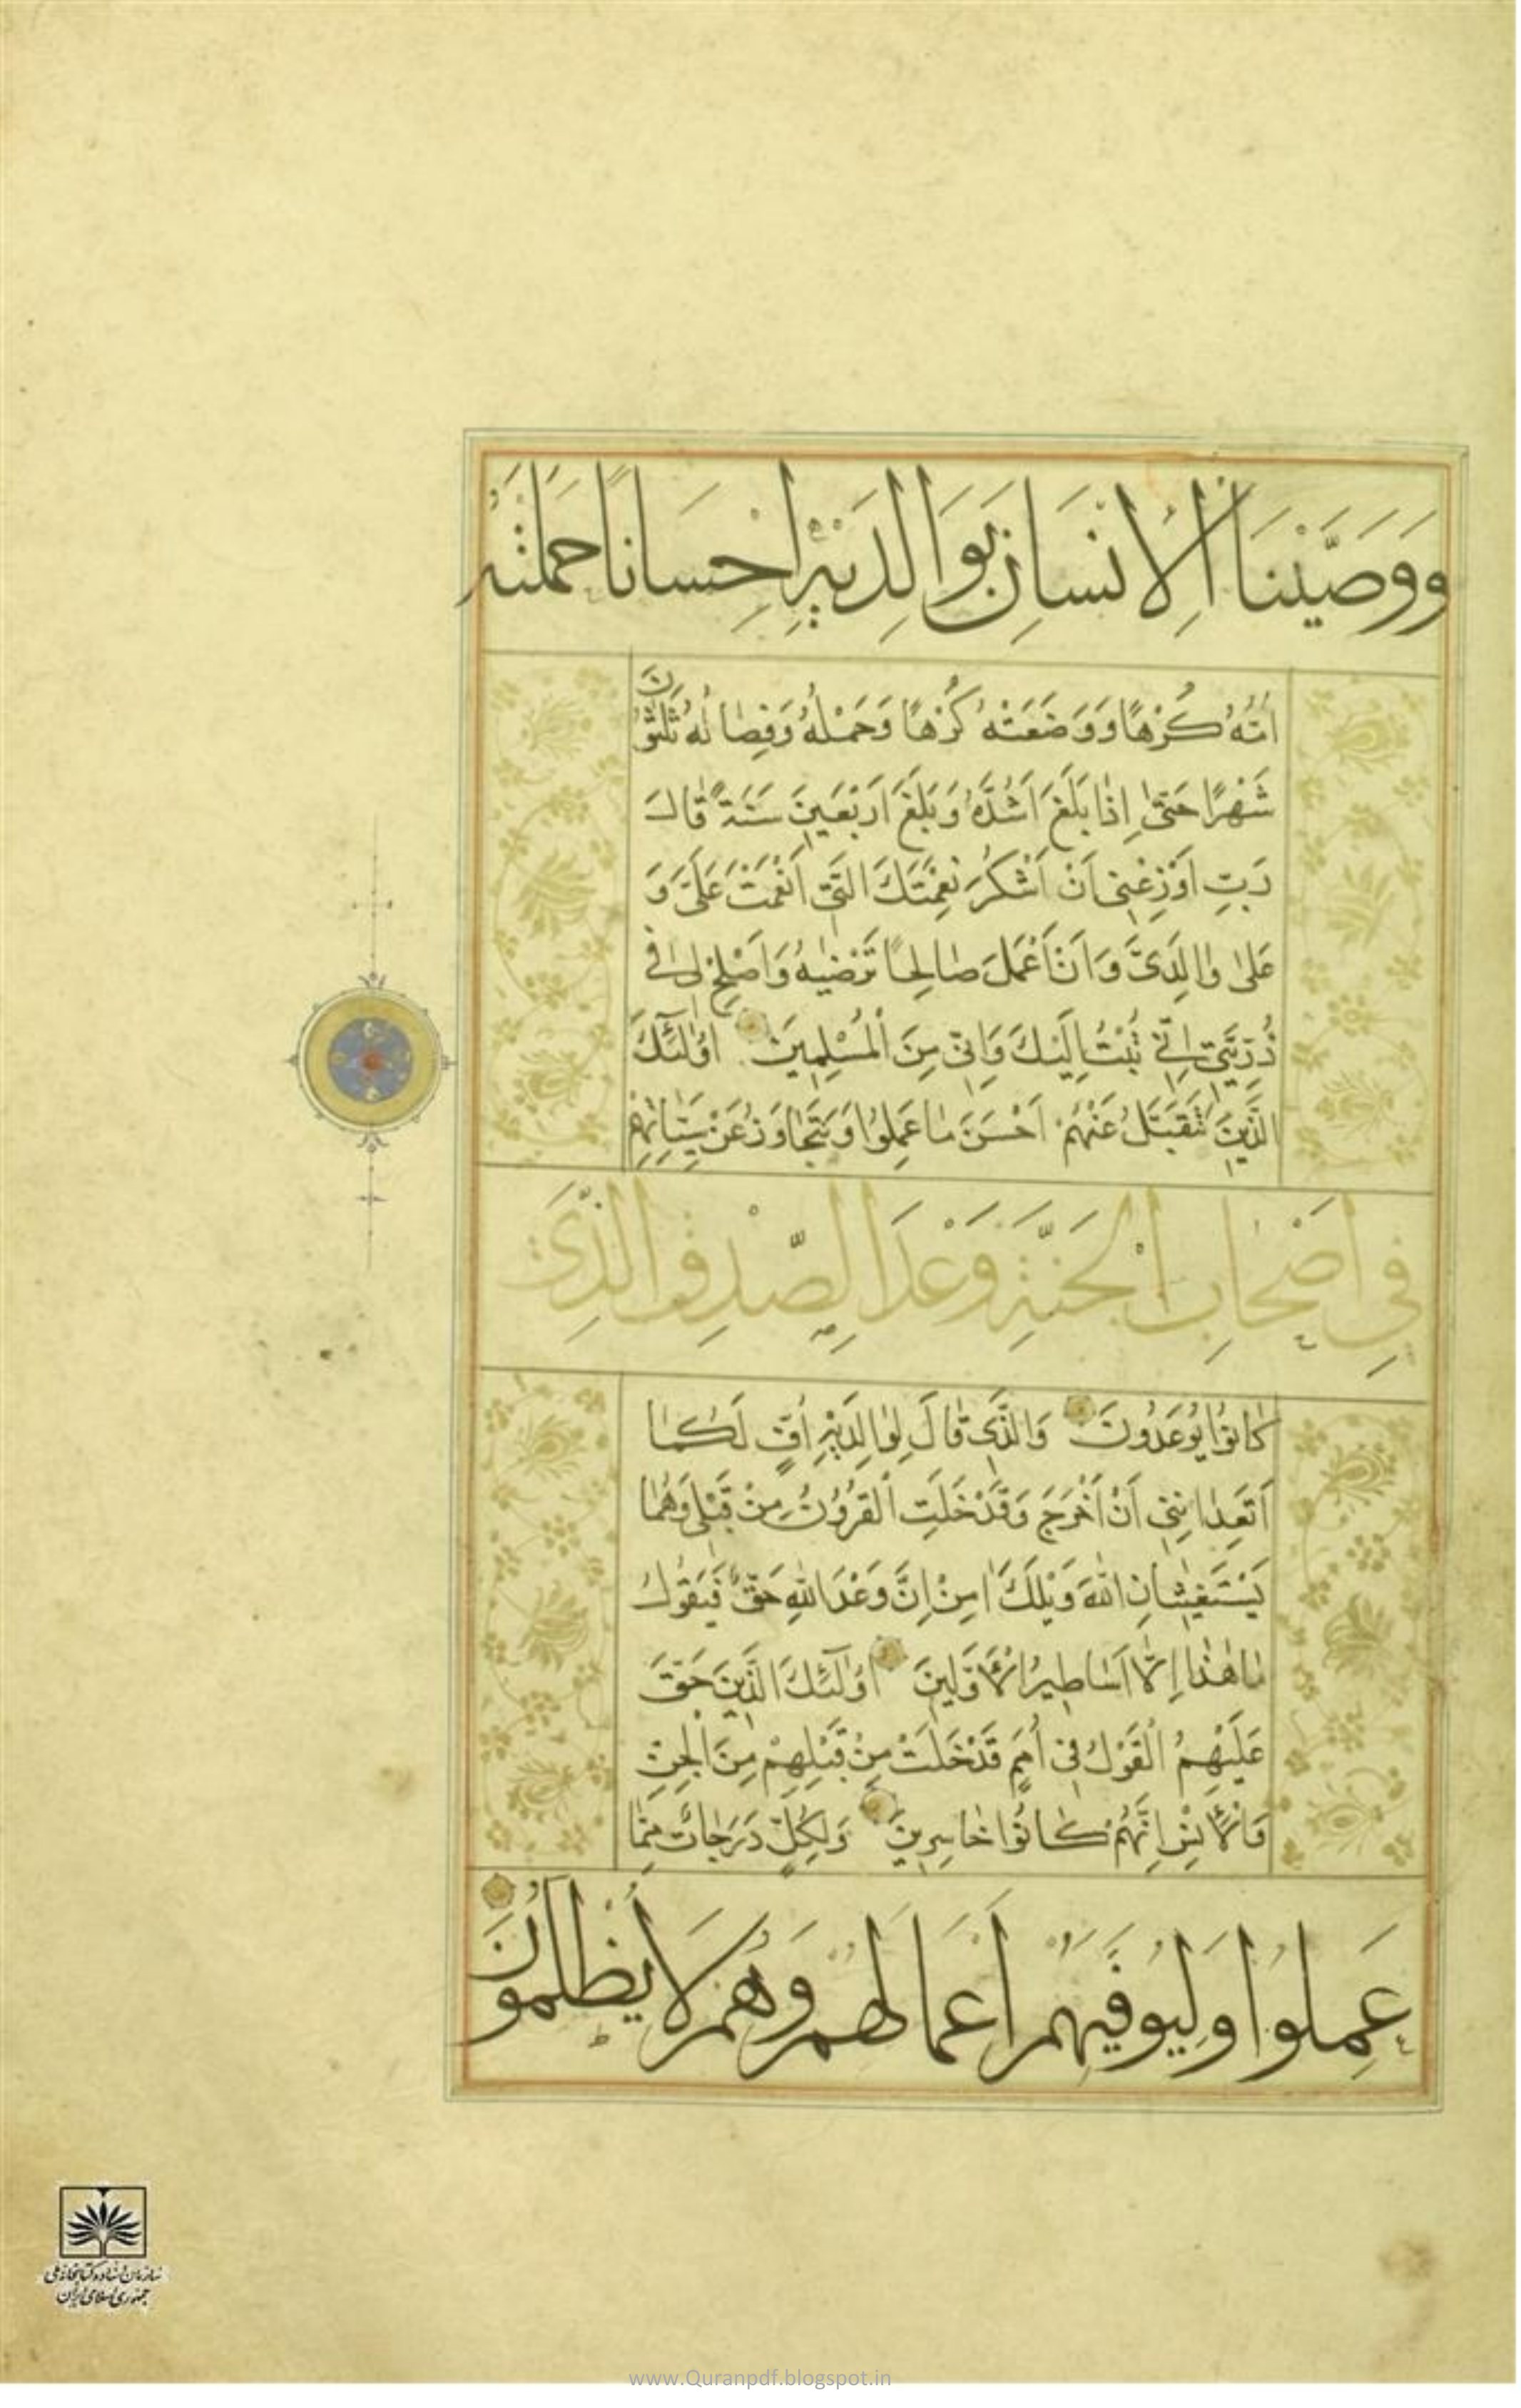 وَوَصَّيْنَا الْاِنْسَانَ بِوَالِدَيْهِ اِحْسَانًا حَمَلَتْهُ
اُمُّهُ كُرْهًا وَوَضَعَتْهُ كُرْهًا وَحَمْلُهُ وَفِصَالُهُ ثَلٰثُونَ
شَهْرًا حَتّٰى اِذَا بَلَغَ اَشُدَّهُ وَبَلَغَ اَرْبَعِينَ سَنَةً قَالَ
رَبِّ اَوْزِعْنِى اَنْ اَشْكُرَ نِعْمَتَكَ الَّتِى اَنْعَمْتَ عَلَىَّ وَ
عَلٰى وَالِدَىَّ وَاَنْ اَعْمَلَ صَالِحًا تَرْضٰيهُ وَاَصْلِحْ لِى فِى
ذُرِّيَّتِى اِنِّى تُبْتُ اِلَيْكَ وَاِنِّى مِنَ الْمُسْلِمِينَ اُولٰئِكَ
الَّذِينَ نَتَقَبَّلُ عَنْهُمْ اَحْسَنَ مَا عَمِلُوا وَنَتَجَاوَزُ عَنْ سَيِّئَاتِهِمْ
فِى اَصْحَابِ الْجَنَّةِ وَعْدَ الصِّدْقِ الَّذِى
كَانُوا يُوعَدُونَ وَالَّذِى قَالَ لِوَالِدَيْهِ اُفٍّ لَكُمَا
اَتَعِدَانِنِى اَنْ اُخْرَجَ وَقَدْ خَلَتِ الْقُرُونُ مِنْ قَبْلِى وَهُمَا
يَسْتَغِيثَانِ اللّٰهَ وَيْلَكَ اٰمِنْ اِنَّ وَعْدَ اللّٰهِ حَقٌّ فَيَقُولُ
مَا هٰذَا اِلَّا اَسَاطِيرُ الْاَوَّلِينَ اُولٰئِكَ الَّذِينَ حَقَّ
عَلَيْهِمُ الْقَوْلُ فِى اُمَمٍ قَدْ خَلَتْ مِنْ قَبْلِهِمْ مِنَ الْجِنِّ
وَالْاِنْسِ اِنَّهُمْ كَانُوا خَاسِرِينَ وَلِكُلٍّ دَرَجَاتٌ مِمَّا
عَمِلُوا وَلِيُوَفِّيَهُمْ اَعْمَالَهُمْ وَهُمْ لَا يُظْلَمُونَ
سازمان اسناد و کتابخانه ملی
جمهوری اسلامی ایران
www.Quranpdf.blogspot.in